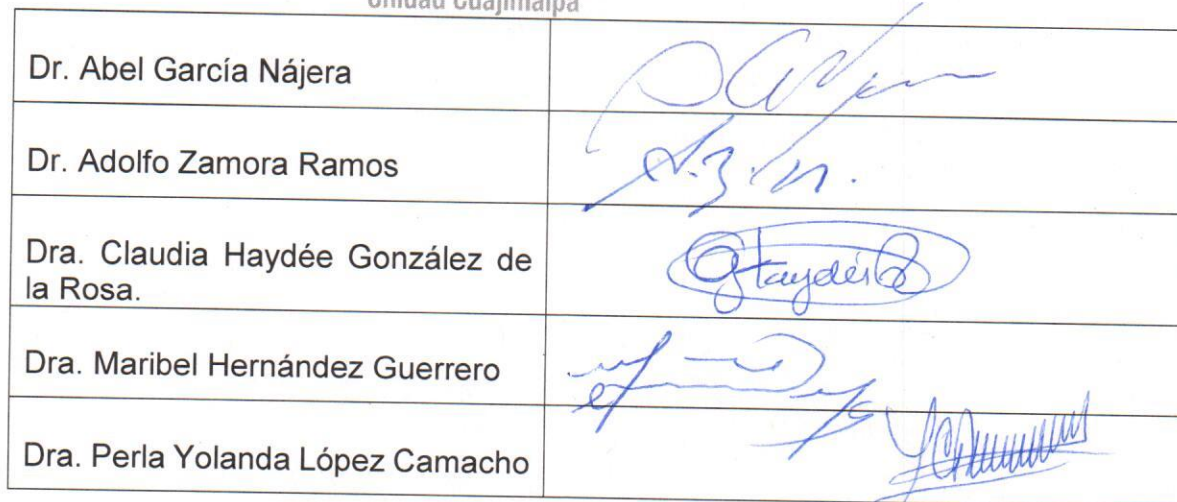 Unidad Cuajimalpa
Dr. Abel García Nájera
Dr. Adolfo Zamora Ramos
A.Z.
Dra. Claudia Haydée González de
la Rosa.
Haydée
Dra. Maribel Hernández Guerrero
Dra. Perla Yolanda López Camacho